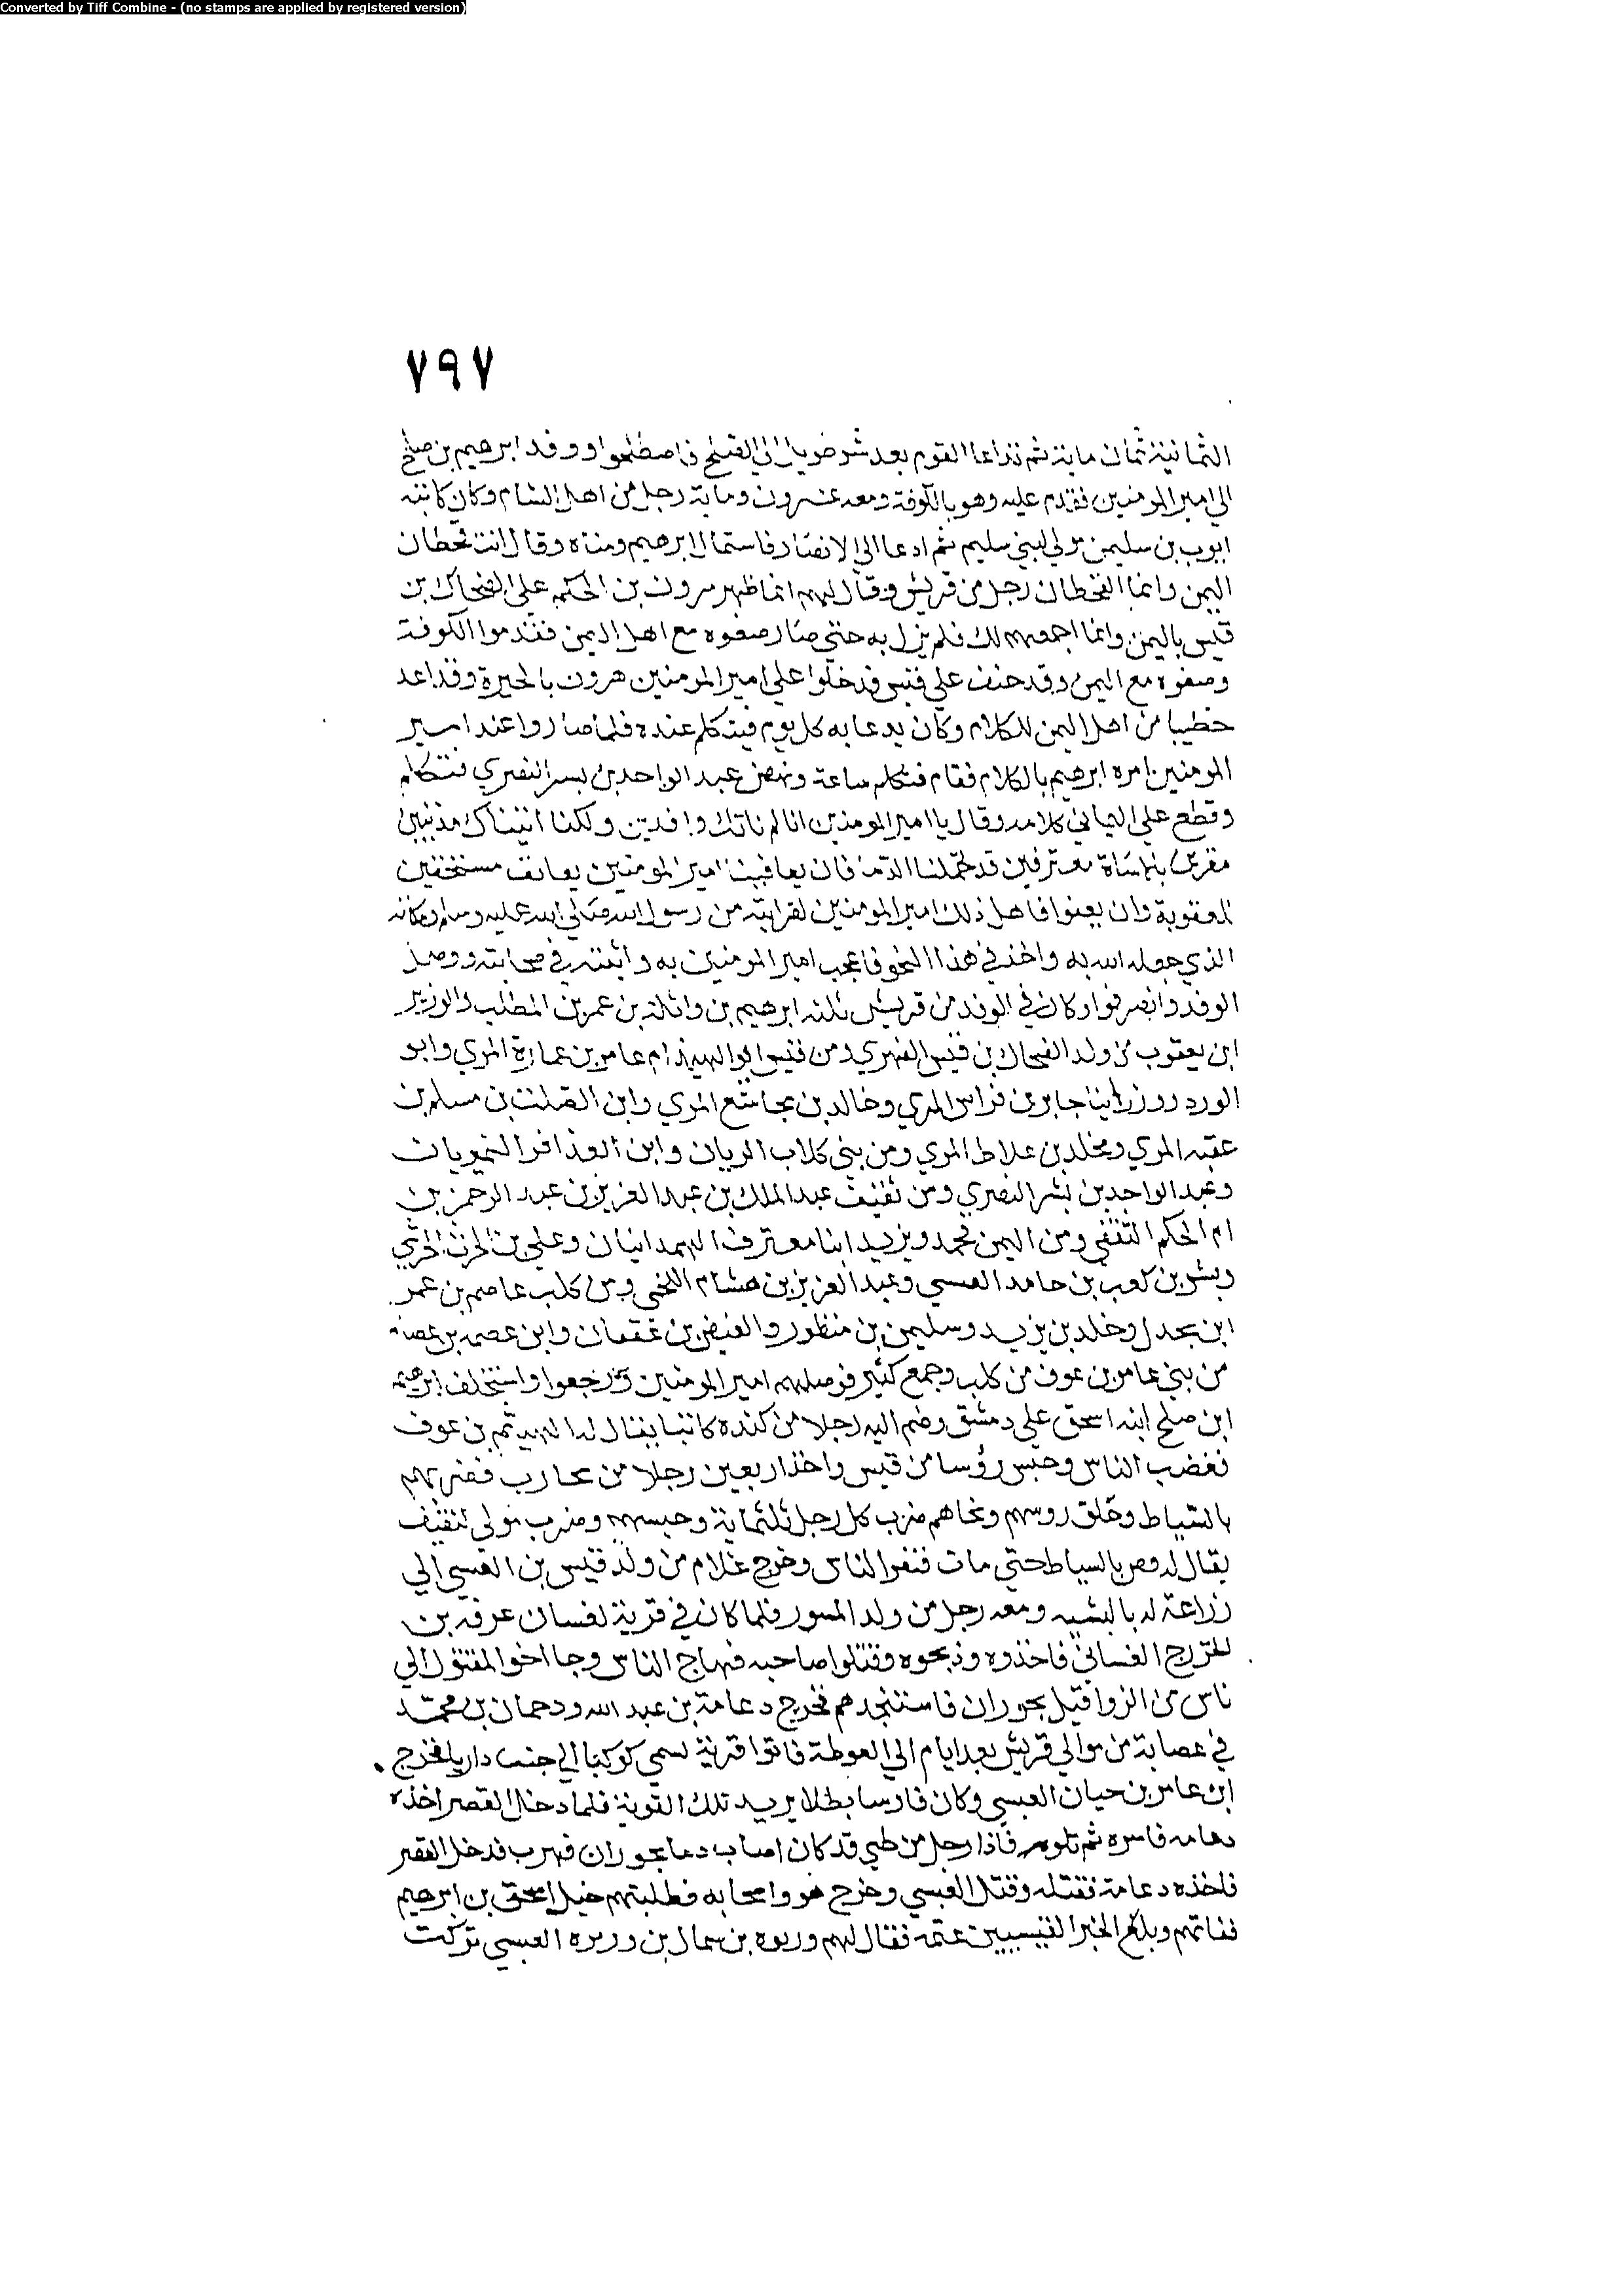 Converted by Tiff Combine - (no stamps are applied by registered version)
٧٩٧
الثمانية ثمان ماية ثم تداعا القوم بعد شر طويل الي الصلح فاصطلحوا ووفد ابرهيم بن صلح
الي امير المومنين فقدم عليه وهو بالكوفة ومعه عشرون وماية رجل من اهل الشام وكان كاتبه
ايوب بن سليمن مولي لبني سليم ثم ادعا الي الانصار فاستمال ابرهيم ومناه وقال انت قحطان
اليمن وانما القحطان رجل من قريش وقال لهم انما ظهر مرون بن الحكم علي الضحاك بن
قيس باليمن وانما اجمعهم لك فلم يزل به حتي صار صغوه مع اهل اليمن فقدموا الكوفة
وصغوه مع اليمن وقد حنف علي قيس فدخلوا علي امير المومنين هرون بالحيرة وقد اعد
خطيبا من اهل اليمن للكلام وكان يدعا به كل يوم فيتكلم عنده فلما صاروا عند امير
المومنين امره ابرهيم بالكلام فقام فتكلم ساعة ونهض عبد الواحد بن بسر النصري فتكلم
وقطع علي اليماني كلامه وقال يا امير المومنين انا لم ناتك وافدين ولكنا اتيناك مذنبين
مقرين باساة معترفين قد تحملنا الدما فان يعاقبنا امير المومنين يعاقب مستحقين
للعقوبة وان يعفوا فاهل ذلك امير المومنين لقرابته من رسول الله صلي الله عليه وسلم ومكانه
الذي جعله الله به واخذ في هذا النحو فاعجب امير المومنين به واثبته في صحابته ووصل
الوفد وانصرفوا وكان في الوفد من قريش ثلثه ابرهيم بن واثلة بن عمر بن المطلب والوزير
ابن يعقوب من ولد الضحاك بن قيس الفهري ومن قيس ابو الهيذام عامر بن عمارة المري وابو
الورد وزر ابنا جابر بن فراس المري وخالد بن مجاشع المري وابن الصلت بن مسلم بن
عقبه المري ومخلد بن علاط المري ومن بني كلاب الريان وابن العذافر النميريان
وعبد الواحد بن بشر النصري ومن ثقيف عبد الملك بن عبد العزيز بن عبد الرحمن بن
ام الحكم الثقفي ومن اليمن محمد ويزيد ابنا معترف الهمدانيان وعلي بن الحرث الحرشي
وبشر بن كعب بن حامد العبسي وعبد العزيز بن هشام اللخمي ومن كلب عاصم بن عمر
ابن بحدل وخلد بن يزيد وسليمن بن منظور والفيض بن عقفان وابن عصمه بن عصام
من بني عامر بن عوف من كلب وجمع كثير فوصلهم امير المومنين ورجعوا واستخلف ابرهيم
ابن صلح ابنه اسحق علي دمشق وضم اليه رجلا من كنده كاتبا يقال له الهيثم بن عوف
فغضب الناس وحبس رؤسا من قيس واخذ اربعين رجلا من محارب فضربهم
بالسياط وحلق روسهم ولحاهم ضرب كل رجل ثلثماية وحبسهم وضرب مولي لثقيف
يقال له بالسياط حتي مات فنفر الناس وخرج غلام من ولد قيس بن العبسي الي
زراعة له بالبثنيه ومعه رجل من ولد المسور فلما كان في قرية لغسان عرفه بن
الغساني فاخذوه وذبحوه وقتلوا صاحبه فهاج الناس وجا اخو المقتول الي
ناس من الزواقيل بحوران فاستنجدهم فخرج دعامة بن عبد الله ودحمان بن محمد
في عصابة من موالي قريش بعد ايام الي الغوطة فاتوا قرية تسمي كوكبا الي جنب داريا فخرج
ابن عامر بن حيان العبسي وكان فارسا بطلا يريد تلك القرية فلما دخل القصر اخذه
دعامه فاسره ثم فاذا رجل من طي قد كان اصاب دما بحوران فهرب فدخل القصر
فاخذه دعامة فقتله وقتل العبسي وخرج هو واصحابه فطلبتهم خيل اسحق بن ابرهيم
ففاتهم وبلغ الخبر القيسيين عتمه فقال لهم بن سمال بن العبسي تركت